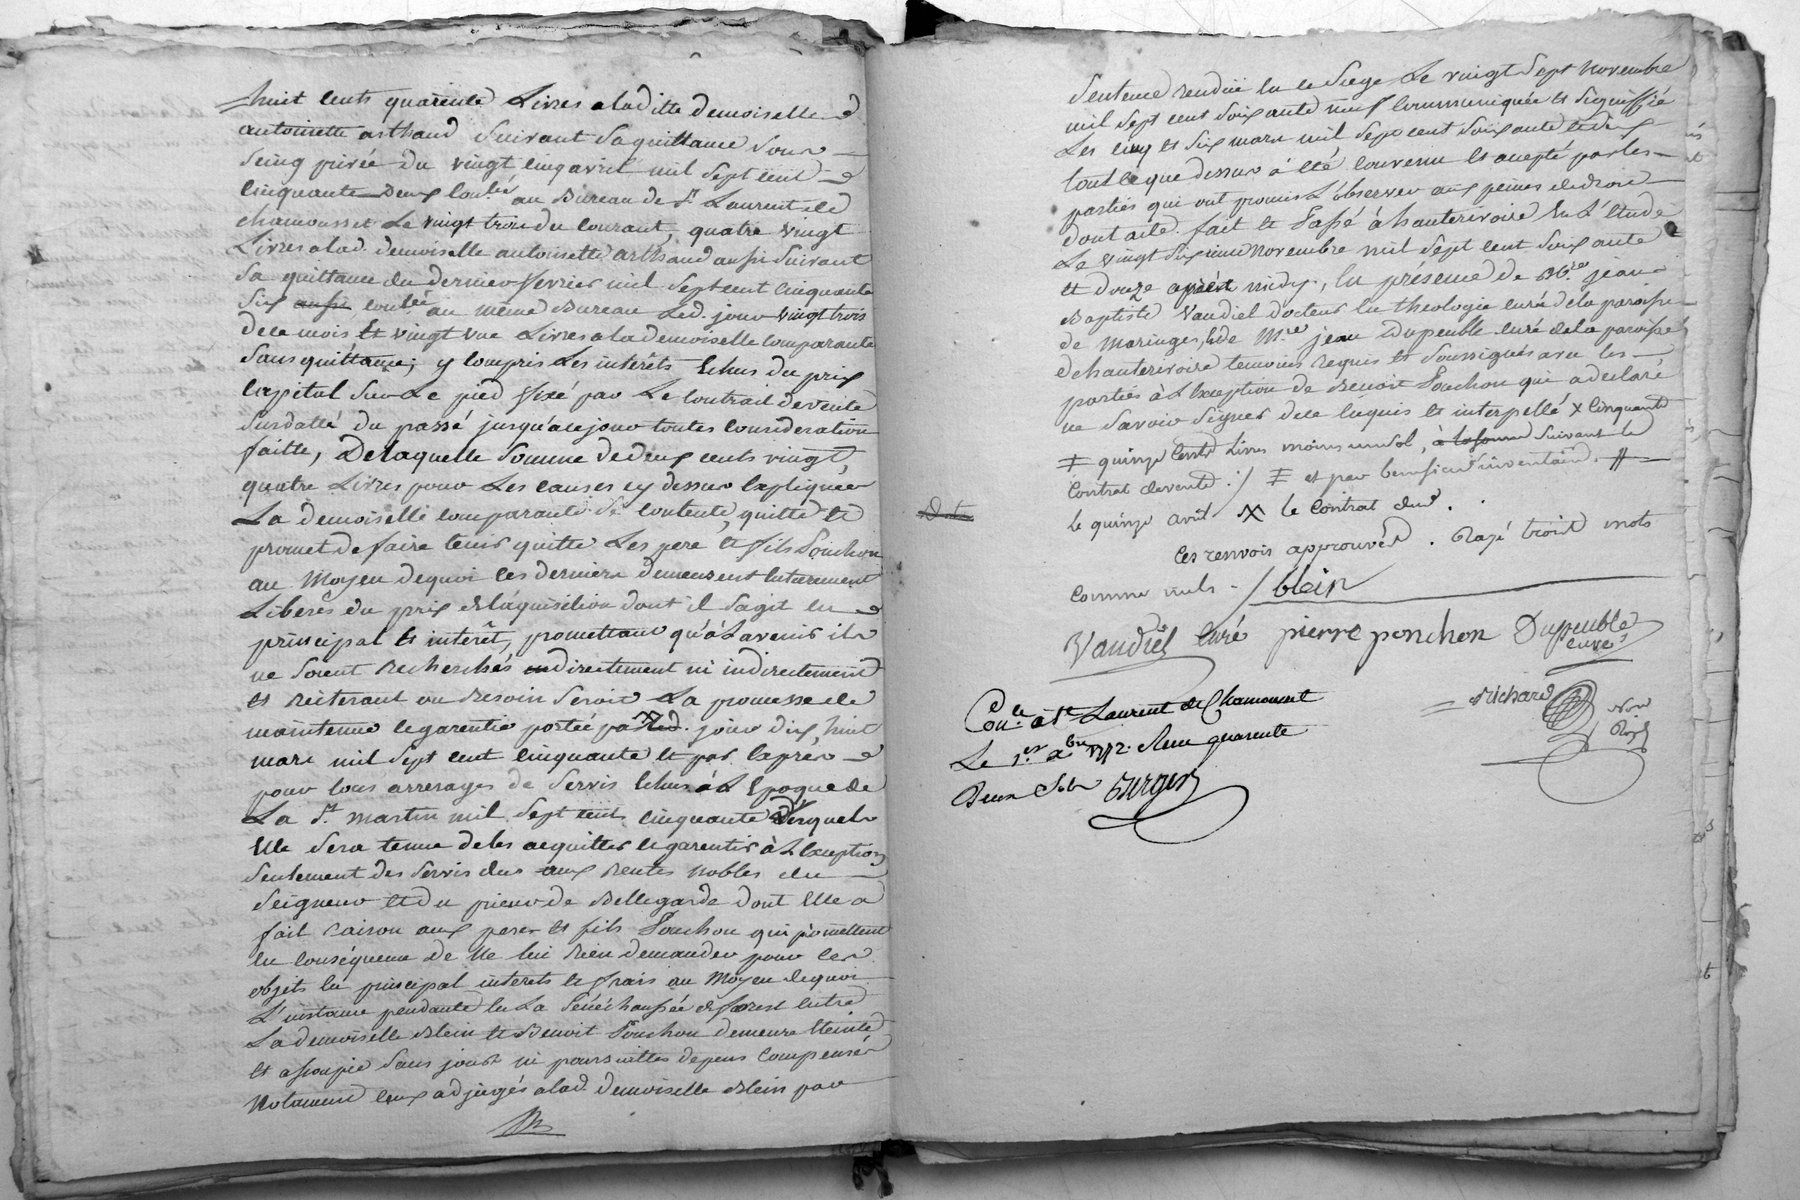 huit cents quarente Livres a laditte demoiselle
antoinette arthaud suivant sa quittance sous
seing privée du vingt cinq avril mil sept cent
cinquante Deux con.lée au Bureau de S.t Laurent de
chamousset Le vingt trois du courant, quatre vingt
Livres a lad. demoiselle antoinette arthaud aussi suivant
sa quittance du dernier fevrier mil sept cent cinquante
six aussi con.lée au même Bureau Led. jour vingt trois
de ce mois Et vingt une Livres a la demoiselle comparante
sans quittance; y compris Les interêts Echus du prix
Capital sur Le pied fixé par Le contrat de vente
susdatté du passé jusqu'a ce jour toutes consideration
faitte, De laquelle somme de deux cents vingt
quatre Livres pour Les causes cy dessus Expliquées
La demoiselle comparante se contente, quitte Et
promet de faire tenir quitte Les pere Et fils Ponchon
au Moyen de quoi ces derniers demeurent Entierement
Liberés du prix de L'aquisition dont il s'agit En
principal Et interêt, promettant qu'à L'avenir ils
ne seront recherchés directement ni indirectement
Et reiterant ou Besoin seroit La promesse de
maintenue Et garentie portée par led. jour dix huit
mars mil sept cent cinquante Et par Exprès
pour tous arrerages de servis Echus à L'Epoque de
La S.t martin mil sept cent cinquante desquels
Elle sera tenue de les acquitter Et garentir à L'Exception
seulement des servis dus aux rentes nobles du
seigneur Et du prieur de Bellegarde dont Elle a
fait raison aux peres Et fils Ponchon qui promettent
En conséquence de Ne lui rien demander pour ces
objets En principal interets Et frais au Moyen de quoi
L'instance pendante En La sénéchaussée de forest Entre
La demoiselle Blein Et Benoit Ponchon demeure Eteinte
Et assoupie sans jour ni poursuittes depens compensés
Notament ceux adjugés a lad. demoiselle Blein par
sentence rendüe En ce siege Le vingt sept novembre
mil sept cent soixante neuf communiquée Et signiffié
Les cinq Et six mars mil sept cent soixante Et deux
tout ce que dessus à Eté convenu Et accepté par les
parties qui ont promis L'observer aux peines de droit
dont acte. fait Et Passé à hauterivoire En L'Etude
Le vingt sixieme Novembre mil sept cent soixante
Et douze après midy, En présence de M.re jean
Baptiste Vaudiel docteur En theologie curé de la paroisse
de maringes, Et de M.re jean Dupeuble curé de la paroisse
d'hauterivoire temoins requis Et soussignés avec les
parties à L'Exception de Benoit Ponchon qui a declaré
ne savoir signer de ce Enquis Et interpellé x cinquante
‡ quinze cents Livres moins un sol, à la forme suivant le
contrat de vente :/ ‡ et par benefice d'inventaire. #
le quinze avril x le contrat dud.
Ces renvois approuvés. Rayé trois mots
comme nuls ·/ blein
Vaudiel curé pierre ponchon Dupeuble
curé
Con.lé a S.t Laurent de Chamousset
Le 1.er x.bre 1772. Reçu quarente
Deux sols
Richard
Not.
Roy.l